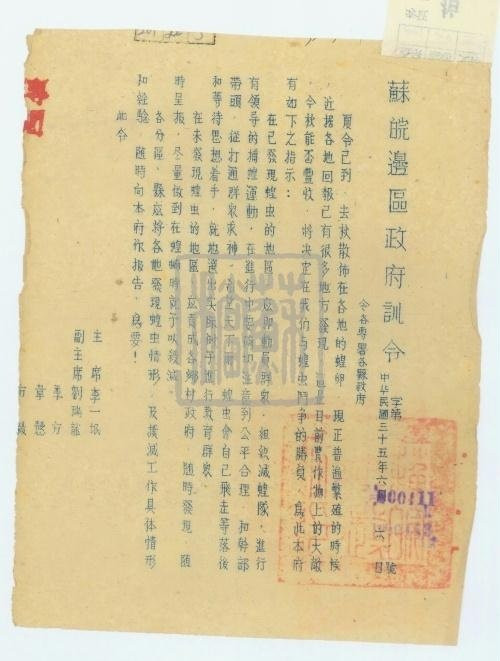 蘇皖邊區政府訓令
字第 號
中华民國三十五年六月 日
令各專署各縣政府
夏令已到，去秋散佈在各地的蝗卵，現正普遍繁殖的時候
，近据各地回報已有很多地方發現，這是目前農作物上的大敵
，今秋能否豐收，將決定在我们与蝗虫鬥争的勝負，為此本府
有如下之指示：
在已發現蝗虫的地區，應即動員群眾，組織滅蝗隊，進行
有領导的捕蝗運動，在進行中要確切注意到公平合理，和幹部
帶頭，從打通群眾求神，蝗虫會自己飛走等落後
和等待思想着手，就地選出实际例子進行教育群眾。
在未發現蝗虫的地區，应責成各鄉村政府，随時發現，随
時呈报，尽量做到在蝗蝻時就予以殺滅。
各分區，縣应將各地發現蝗虫情形，及撲滅工作具体情形
和经驗，随時向本府作报告，為要！
此令
主席李一氓
副主席劉瑞龍
季方
韋慤
方毅